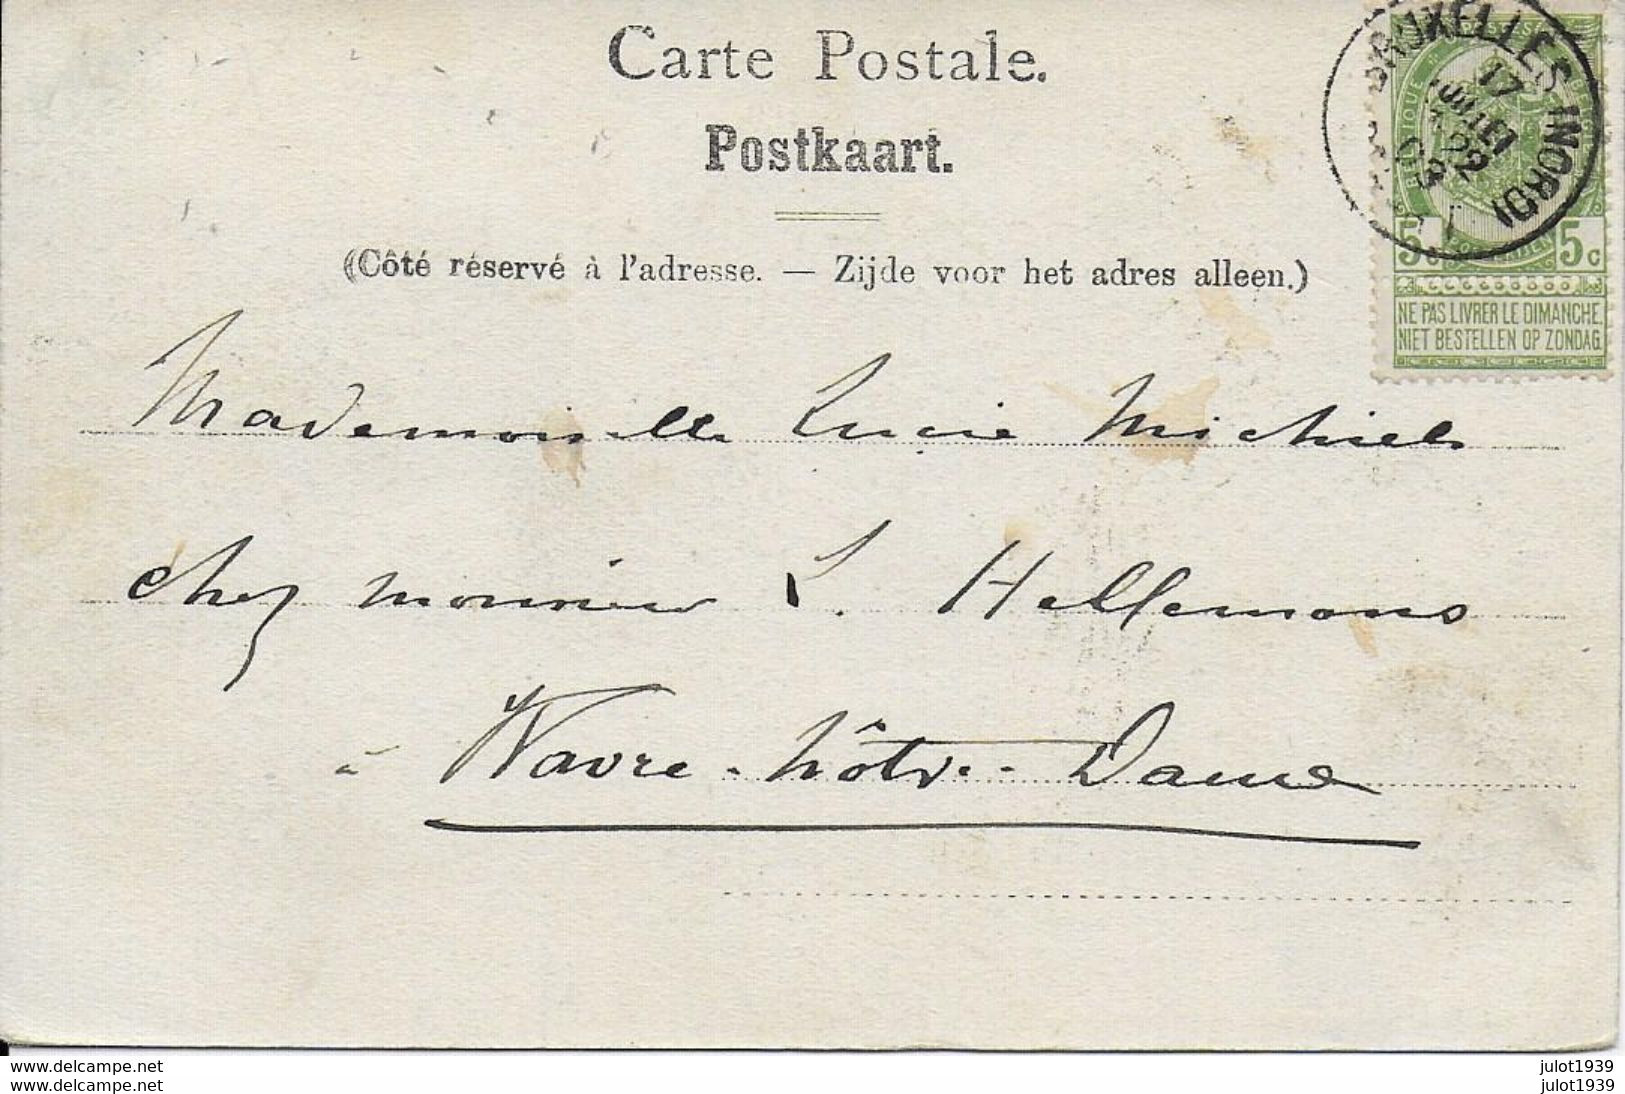 Carte Postale.
Postkaart.
(Côté réservé à l'adresse. — Zijde voor het adres alleen.)
BRUXELLES (NORD)
17
JUIL
BELGIQUE
5c 5c
NE PAS LIVRER LE DIMANCHE.
NIET BESTELLEN OP ZONDAG
Mademoiselle Lucie Michiels
chez monsieur L. Hellemans
à Wavre-Nôtre-Dame
www.delcampe.net
www.delcampe.net
julot1939
julot1939